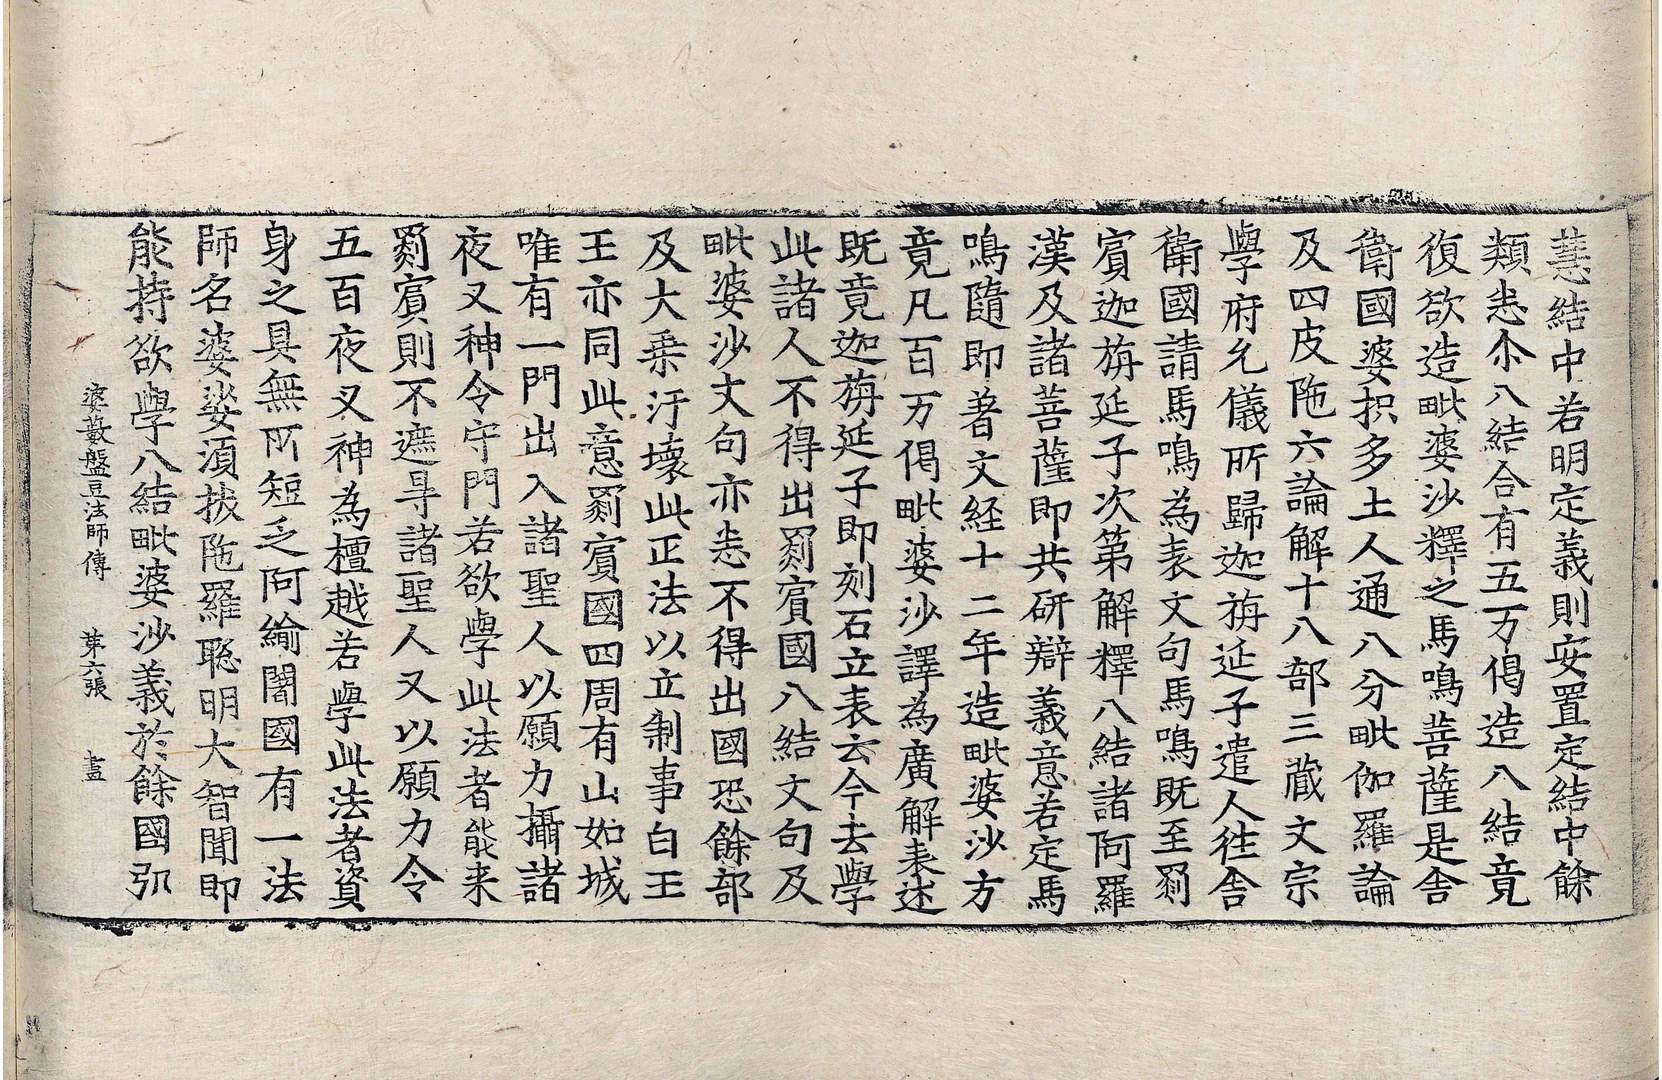 慧結中若明定義則安置定結中餘
類悉尒八結合有五万偈造八結竟
復欲造毗婆沙釋之馬鳴菩薩是舍
衛國婆枳多土人通八分毗伽羅論
及四皮陁六論解十八部三蔵文宗
學府允儀所歸迦旃延子遣人徃舍
衛國請馬鳴為表文句馬鳴既至罽
賔迦旃延子次第解釋八結諸阿羅
漢及諸菩薩即共研辯義意若定馬
鳴隨即著文經十二年造毗婆沙方
竟凡百万偈毗婆沙譯為廣解表述
既竟迦旃延子即刻石立表云今去學
此諸人不得出罽賔國八結文句及
毗婆沙文句亦悉不得出國恐餘部
及大乗汙壞此正法以立制事白王
王亦同此意罽賔國四周有山如城
唯有一門出入諸聖人以願力攝諸
夜叉神令守門若欲學此法者能来
罽賔則不遮㝵諸聖人又以願力令
五百夜叉神為檀越若學此法者資
身之具無所短乏阿緰闍國有一法
師名婆娑須拔陁羅聡明大智聞即
能持欲學八結毗婆沙義於餘國弘
婆藪盤豆法師傳　第六張　盡